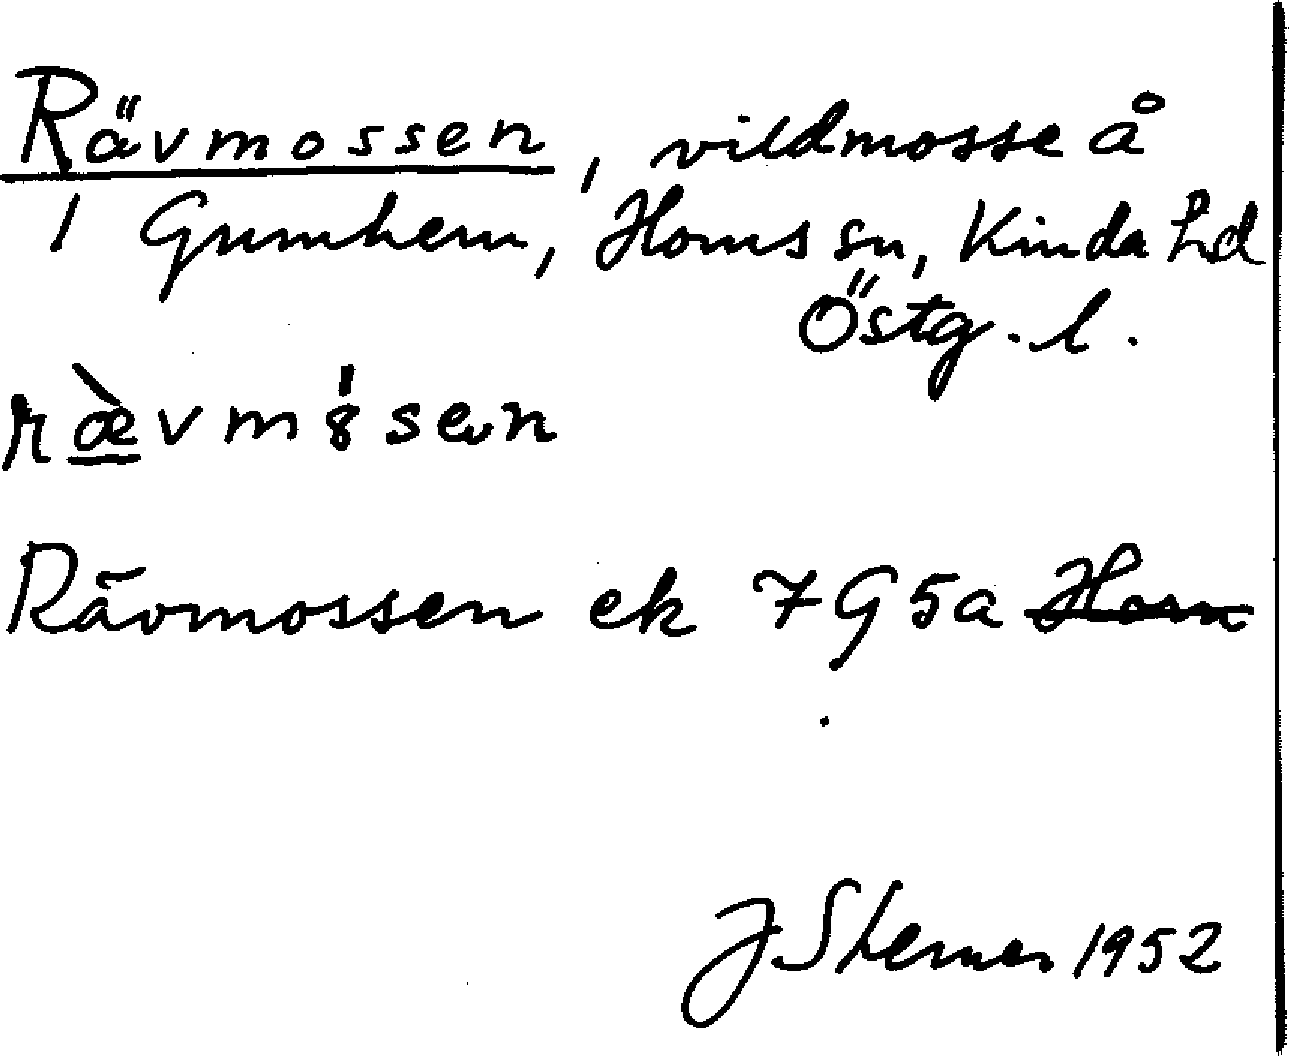 Rävmossen, vildmosse å
1 Gumhem, Horns sn, Kinda hd
Östg. l.
ræ̀vmı8sen
Rävmossen ek 7G5a Horn
J Sterner 1952